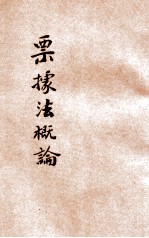 票據法概論